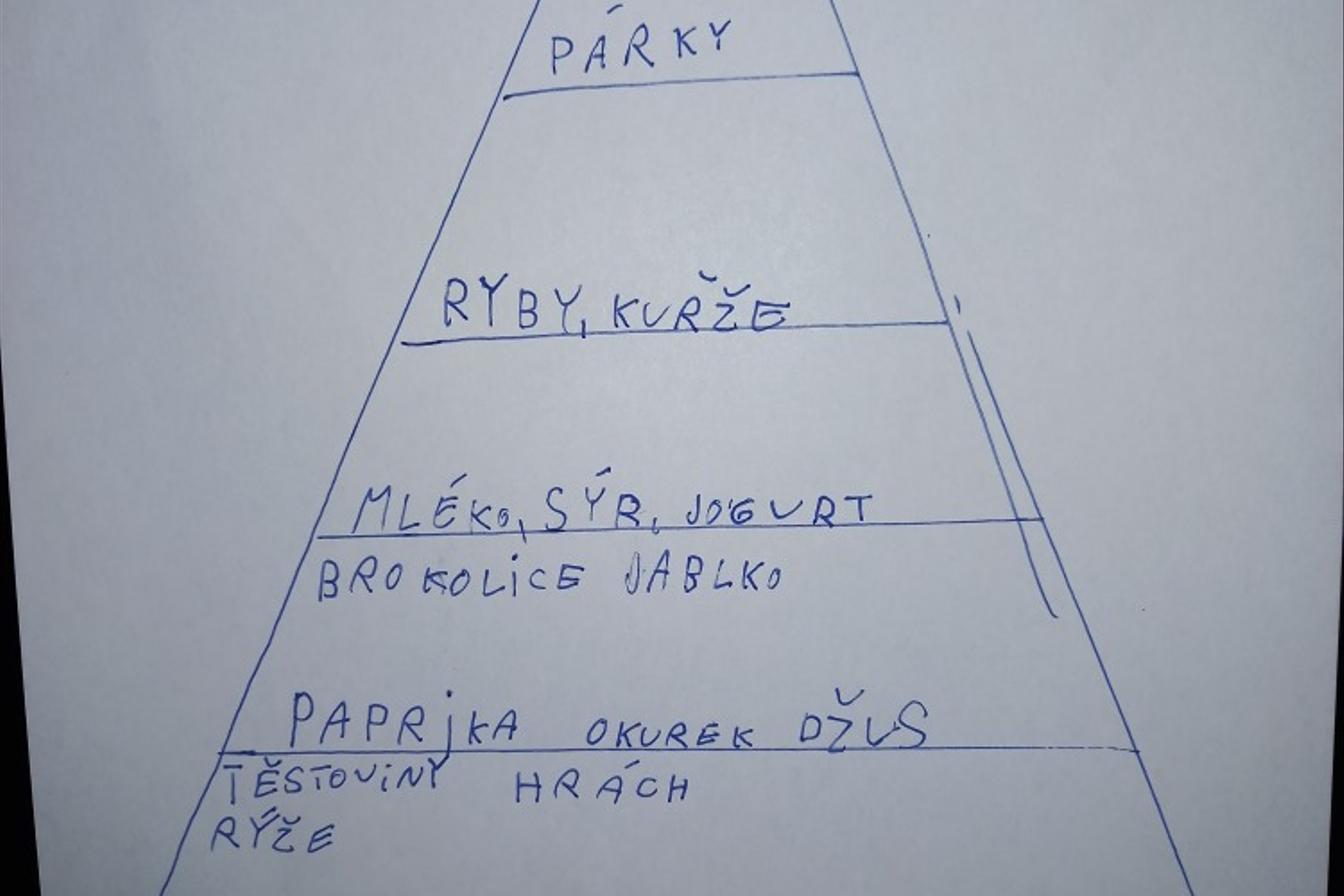 PÁRKY
RYBY, KUŘŽE
MLÉKO, SÝR, JOGURT
BROKOLICE JABLKO
PAPRIKA OKUREK DŽUS
TĚSTOVINY HRÁCH
RÝŽE